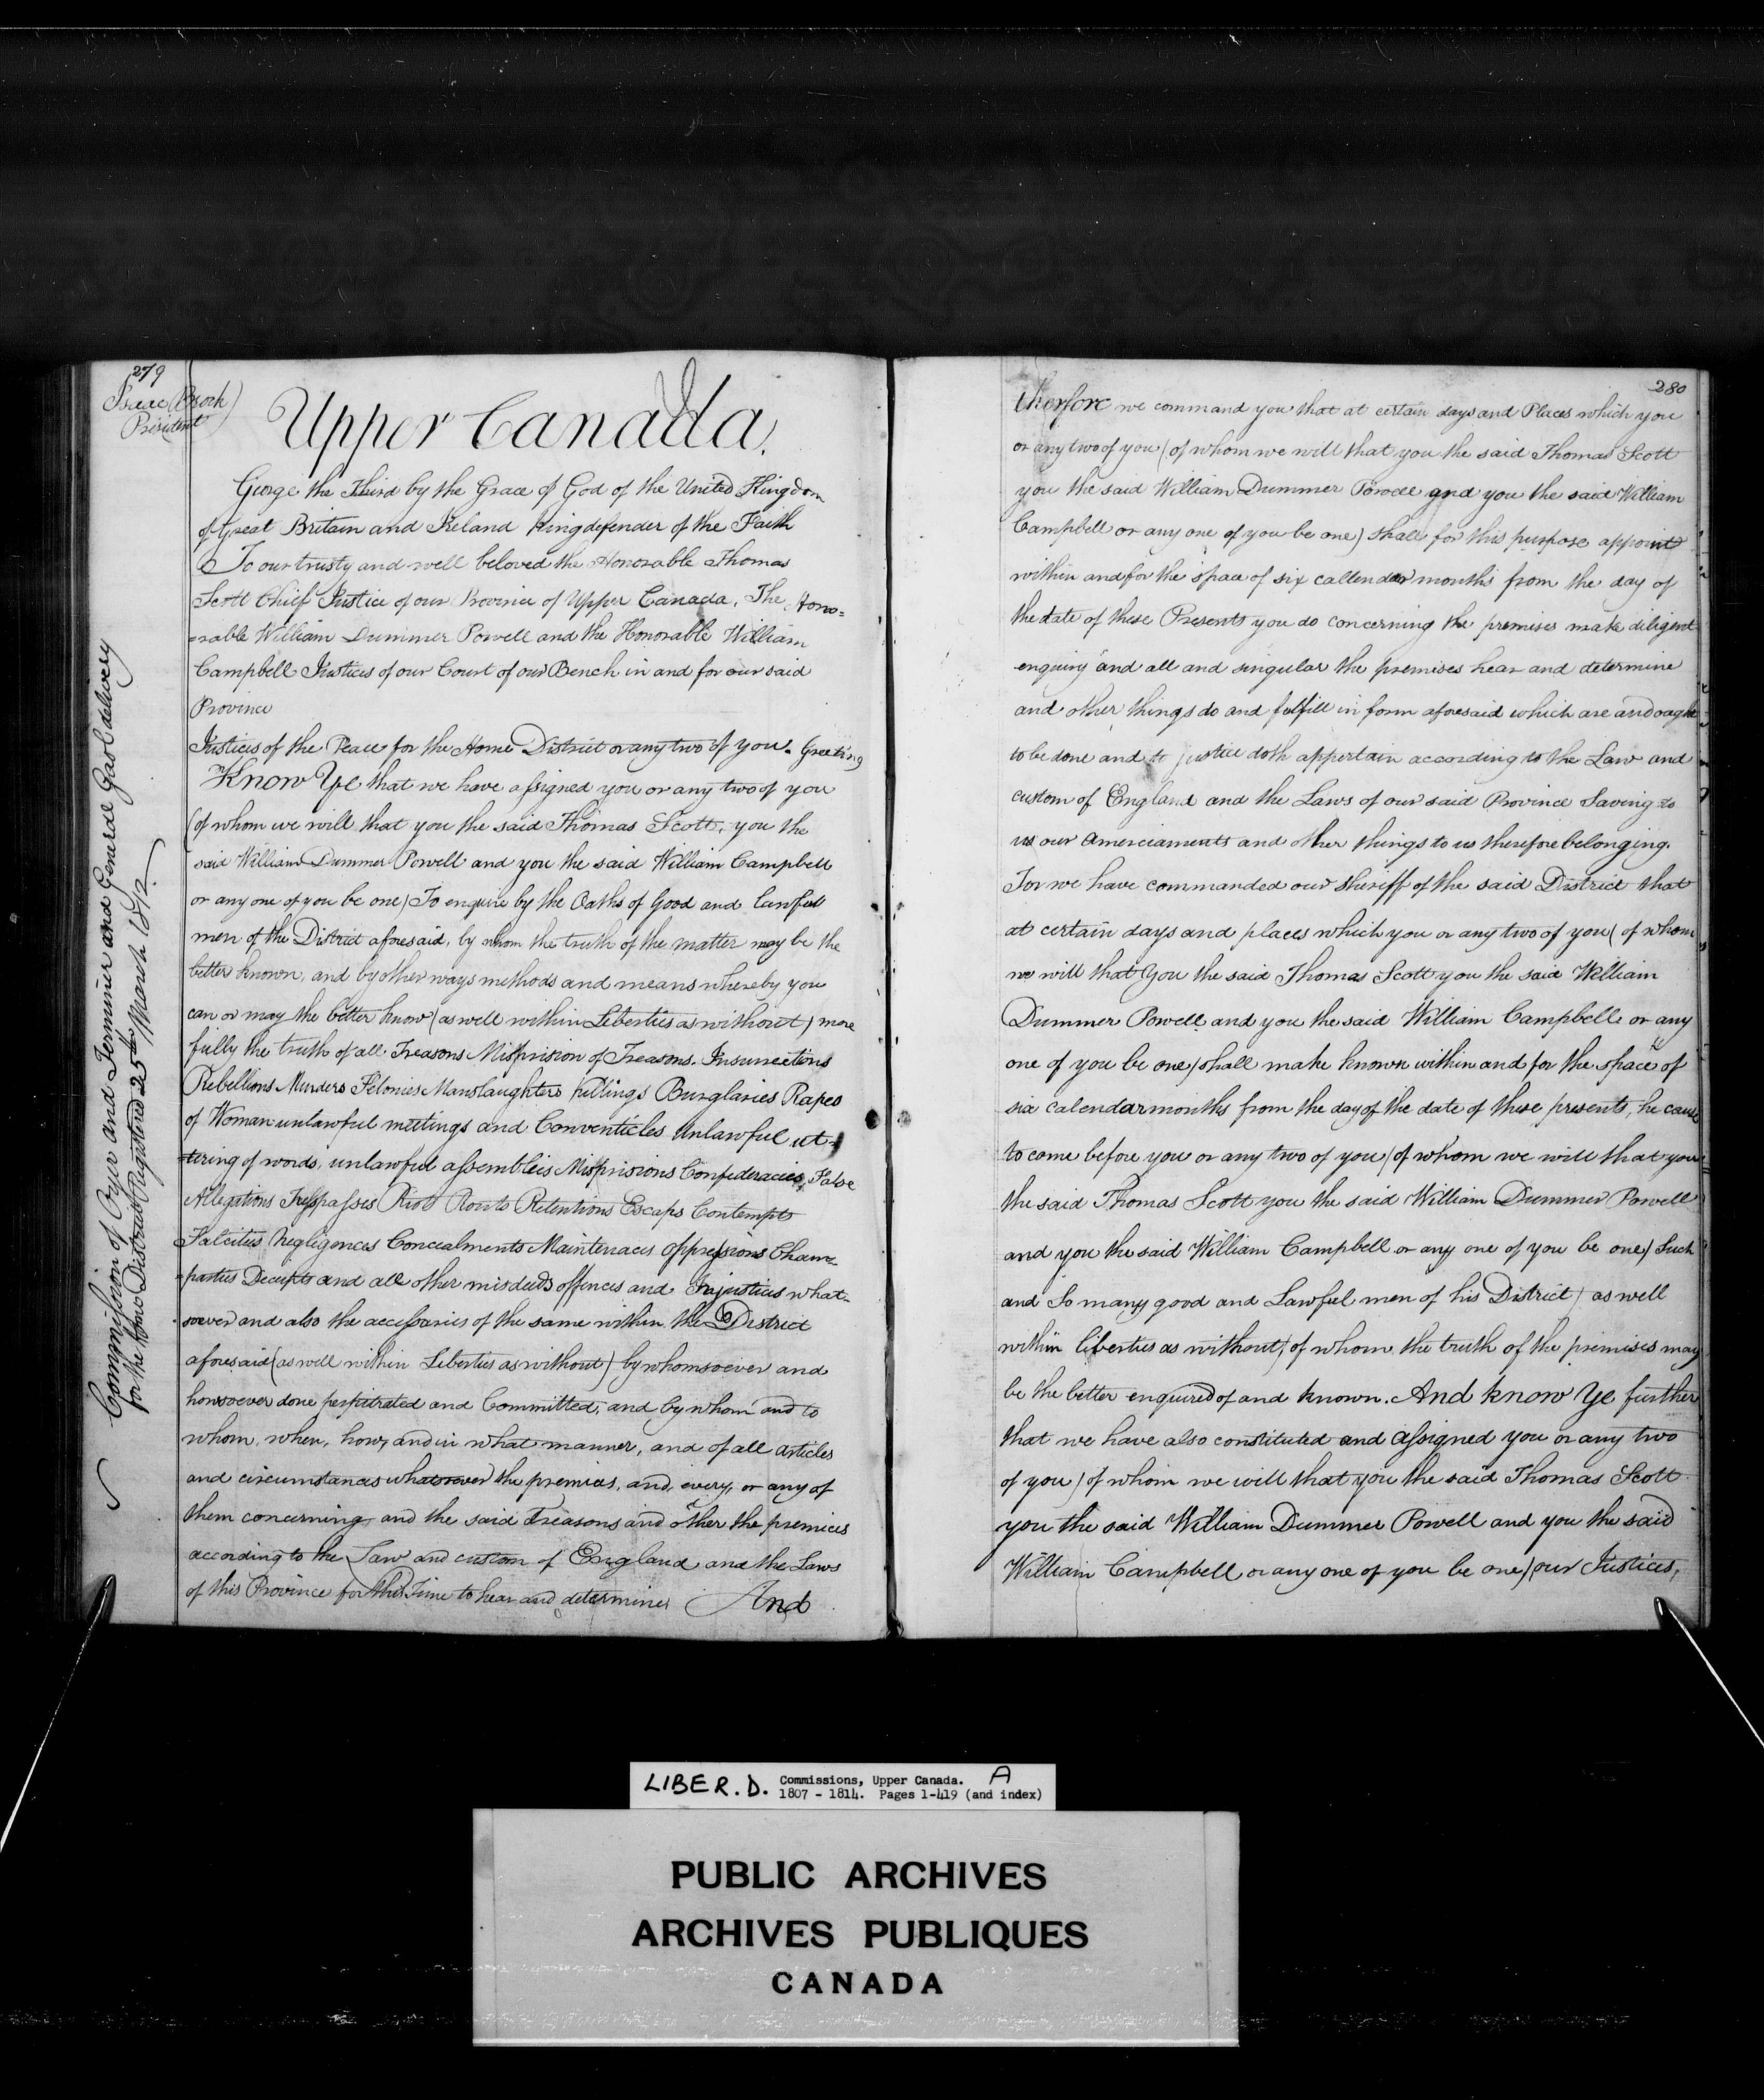 279
Isaac Brock)
President
Upper Canada.
George the Third by the Grace of God of the United Kingdom
of Great Britain and Ireland King defender of the Faith
To our trusty and well beloved the Honorable Thomas
Scott Chief Justice of our Province of Upper Canada, The Hono=
=rable William Dummer Powell and the Honorable William
Campbell Justices of our Court of our Bench in and for our said
Province
Justices of the Peace for the Home District or any two of you. Greeting
Know Ye that we have assigned you or any two of you
(of whom we will that you the said Thomas Scott, you the
said William Dummer Powell and you the said William Campbell
or any one of you be one) To enquire by the Oaths of Good and lawful
men of the District aforesaid, by whom the truth of the matter may be the
better known, and by other ways methods and means whereby you
can or may the better know (as well within Liberties as without) more
fully the truth of all Treasons Misprision of Treasons. Insurrections
Rebellions Murders Felonies Manslaughters Killings Burglaries Rapes
of Woman unlawful meetings and Conventicles Unlawful ut=
=tering of words, unlawful assembleis Misprisions Confederacies, False
Allegations Trespasses Riots Routs Retentions Escaps Contempts
Falcities Negligences Concealments Maintenaces Oppressions Cham=
=parties Deceipts and all other misdeeds offences and Injustices what=
soever and also the accessaries of the same within the District
aforesaid (as well within Liberties as without) by whomsoever and
howsoever done perpitrated and Committed, and by whom and to
whom, when, how, and in what manner, and of all articles
and circumstances whatsoever the premices, and, every, or any of
them concerning, and the said Treasons and other the premices
according to the Law and custom of England and the Laws
of this Province for this Time to hear and determine And
Commission of Oyer and Terminer and General Gaol delivery
for the Home District Registered 25th March 1812.
280
therefore we command you that at certain days and Places which you
or any two of you (of whom we will that you the said Thomas Scott
you the said William Dummer Powell and you the said William
Campbell or any one of you be one) shall for this purpose appoint
within and for the space of six callendar months from the day of
the date of these Presents you do concerning the premises make diligent
enquiry and all and singular the premises hear and determine
and other things do and fulfill in form aforesaid which are and ought
to be done and to justice doth appertain according to the Law and
custom of England and the Laws of our said Province Saving to
us our Amerciaments and other things to us therefore belonging.
For we have commanded our Sheriff of the said District that
at certain days and places which you or any two of you (of whom
we will that You the said Thomas Scott you the said William
Dummer Powell and you the said William Campbell or any
one of you be one) shall make known within and for the space of
six calendar months from the day of the date of these presents, he cause
to come before you or any two of you (of whom we will that you
the said Thomas Scott you the said William Dummer Powell
and you the said William Campbell or any one of you be one) Such
and So many good and Lawful men of his District) as well
within liberties as without, of whom the truth of the premises may
be the better enquired of and known. And know Ye further
that we have also constituted and assigned you or any two
of you (of whom we will that you the said Thomas Scott
you the said William Dummer Powell and you the said
William Campbell or any one of you be one) our Justices,
LIBER.D. Commissions, Upper Canada. A
1807 - 1814. Pages 1-419 (and index)
PUBLIC ARCHIVES
ARCHIVES PUBLIQUES
CANADA